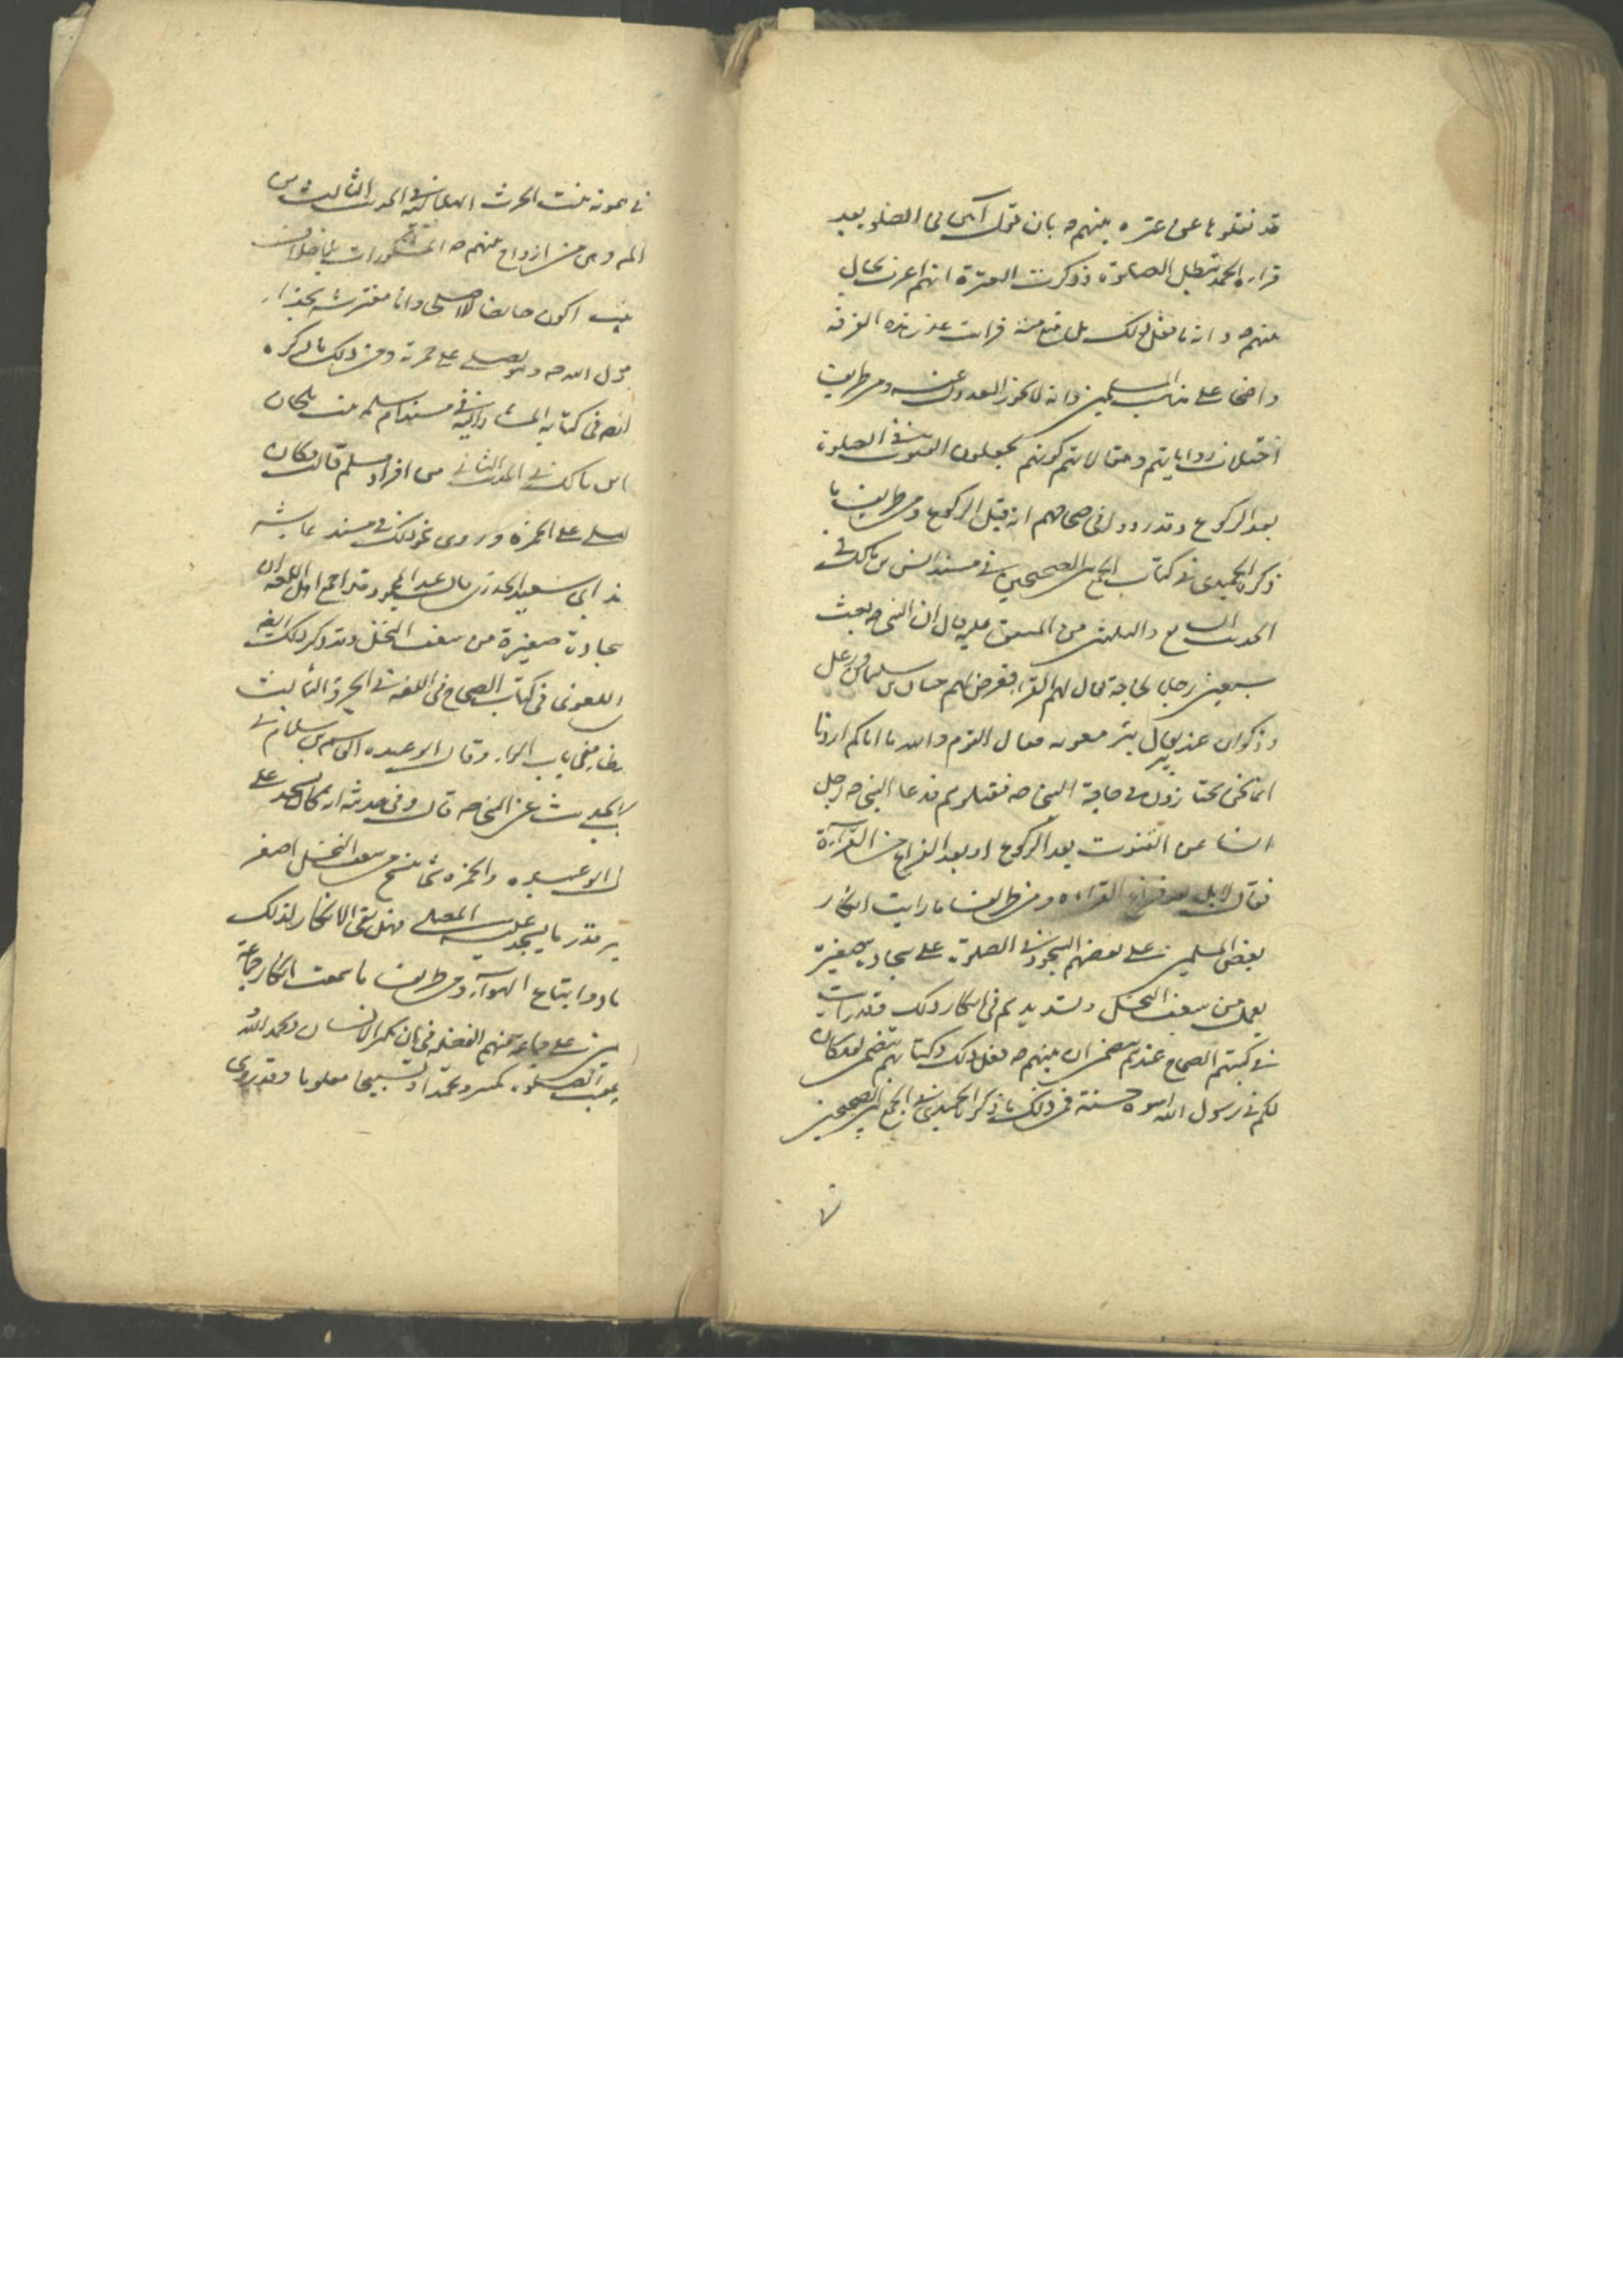 قد نقلوها عن عترة نبيهم ص بان قول آمين في الصلوة بعد
قراءة الحمد تبطل الصلوة وذكرت العترة انهم اعرف بحال
نبيهم ص وانه ما فعل ذلك بل منع منه فرأيت عذر هذه الفرقة
واضحا على مذاهب المسلمين وانه لا يجوز العدول عنه ومن طريف
اختلاف رواياتهم ومقالاتهم كونهم يجعلون القنوت في الصلوة
بعد الركوع وقد رووا في صحاحهم انه قبل الركوع ومن طريف ما
ذكره الحميدي في كتاب الجمع بين الصحيحين في مسند انس بن مالك في
الحديث السابع والثلثين من المتفق عليه قال ان النبي ص بعث
سبعين رجلا لحاجة يقال لهم القراء فعرض لهم حيان من سليم رعل
وذكوان عند بئر يقال بئر معونة فقال القوم والله ما اياكم اردنا
انما نحن مجتازون في حاجة النبي ص فقتلوهم فدعا النبي ص رجل
انسا عن القنوت بعد الركوع او بعد الفراغ من القراءة
فقال لا بل بعد فراغ القراءة ومن طريف ما رأيت انكار
بعض المسلمين على بعضهم السجود في الصلوة على سجادة صغيرة
يعمل من سعف النخل وتشديدهم في انكار ذلك وقد رأيت
في كتبهم الصحاح عندهم يتضمن ان نبيهم ص فعل ذلك وكتابهم يتضمن لقد كان
لكم في رسول الله اسوة حسنة فمن ذلك ما ذكره الحميدي في الجمع بين الصحيحين
في ميمونة بنت الحرث الهلالية في الحديث الثالث من
وهي من ازواج نبيهم ص المشكورات بلا خلاف
اكون حائضا لا اصلي وانا مفترشة بحذاء
رسول الله ص وهو يصلي على خمرته ومن ذلك ما ذكره
ايضا في كتابه المشار اليه في مسند ام سليم بنت ملحان
انس بن مالك في الحديث الثاني من افراد مسلم قالت وكان
يصلي على الخمرة وروى نحو ذلك في مسند عايشة
ابي سعيد الخدري قال عبد المحمود وقد اجمع اهل اللغة ان
سجادة صغيرة من سعف النخل وقد ذكر ذلك ايضا
اللغوي في كتاب الصحاح في اللغة في الجزء الثالث
في باب الراء وقال ابو عبيده القاسم بن سلام في
الحديث عن النبي ص قال وفي حديثه انه كان يسجد على
قال ابو عبيده والخمرة شيء منسوج من سعف النخل اصغر
قدر ما يسجد عليه المصلي فهل بقي الانكار لذلك
واتباع الهواء ومن طريف ما سمعت انكار جماعة
على جماعة منهم الفضلة في ان يكبر الانسان ويحمد الله
عقيب الصلوة تكبيرا وتحميدا وتسبيحا معلوما وقد روى